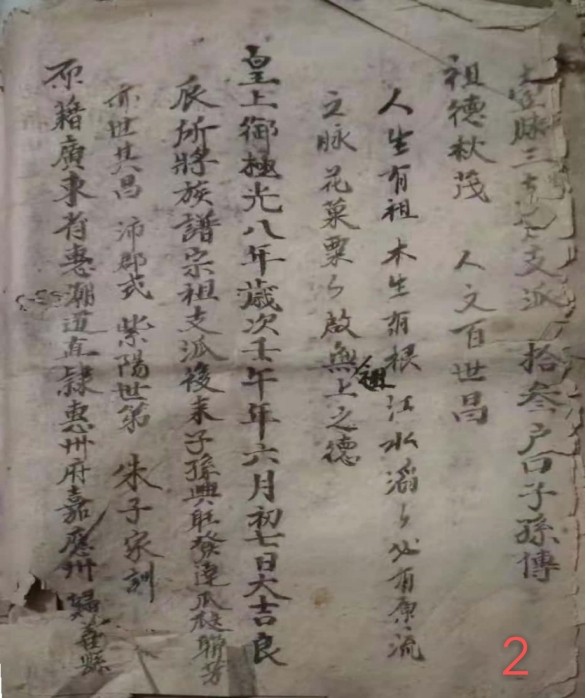 支派 拾叁戶口子孫傳
祖德秋茂 人文百世昌
人生有祖木生有根江水滔々必有原流
之脉花菓栗々啟無上之德
皇上御極光八年歲次壬午年六月初七日大吉良
辰所將族譜宗祖支派後來子孫興旺發達瓜瓞聯芳
亦世其昌 沛郡式 紫陽世第 朱子家訓
原籍廣東省惠潮道直隸惠州府嘉應州
2